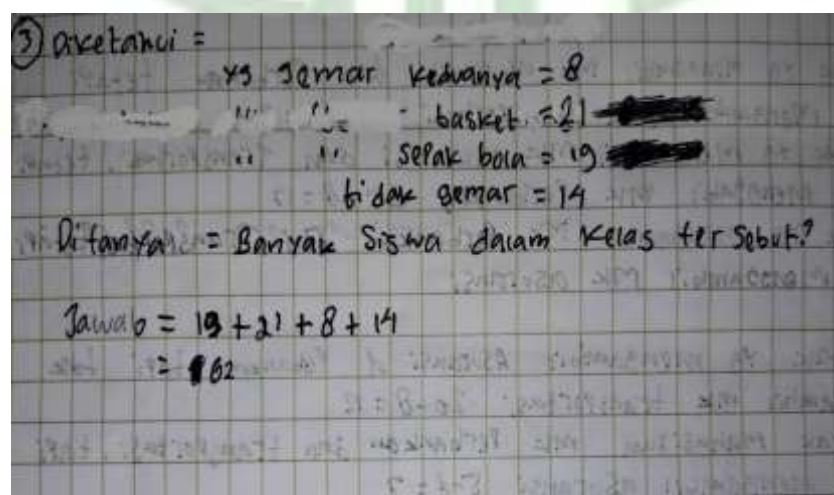 ③ Diketahui =
yg gemar keduanya = 8
" " basket = 21
" " sepak bola = 19
tidak gemar = 14
Ditanya = Banyak Siswa dalam kelas tersebut?
Jawab = 19 + 21 + 8 + 14
= 62